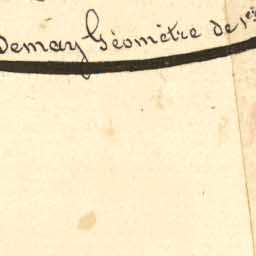 Demay Géomètre de 1er